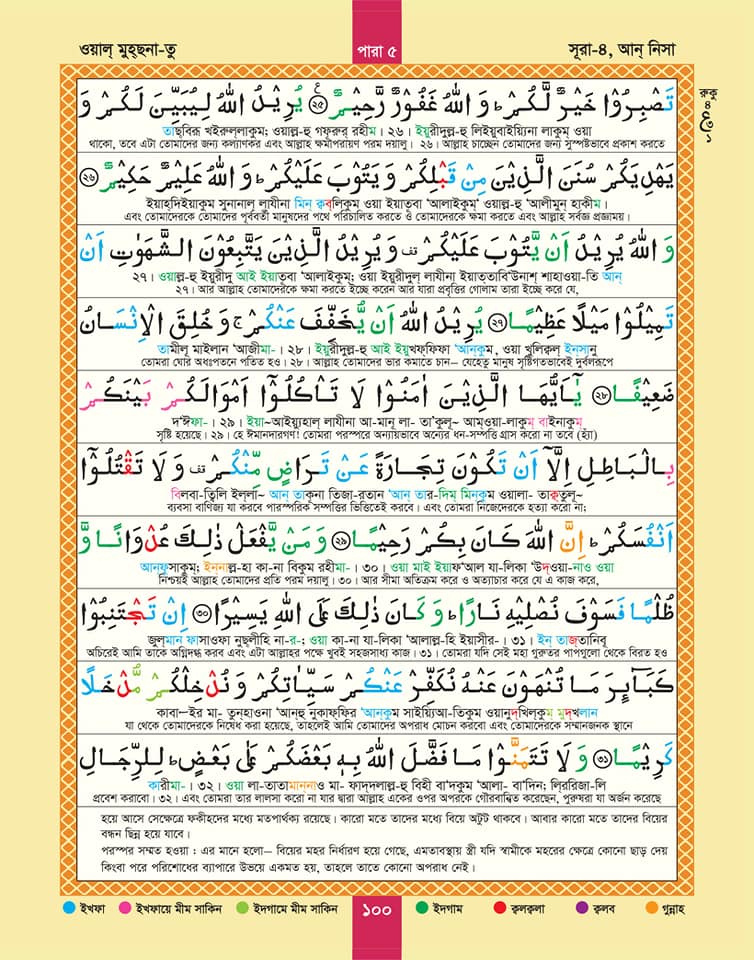 ওয়াল্ মুহ্ছনা-তু
পারা ৫
সূরা-৪, আন্ নিসা
রুকু
৪
تَصْبِرُوْا خَيْرٌ لَّكُمْ ؕ وَ اللّٰهُ غَفُوْرٌ رَّحِيْمٌ ۝٢٥ يُرِيْدُ اللّٰهُ لِيُبَيِّنَ لَكُمْ وَ
তাছ্বিরূ খইরুল্লাকুম; ওয়াল্ল-হু গফূরুর্ রহীম। ২৬। ইয়ুরীদুল্ল-হু লিইয়ুবাইয়্যিনা লাকুম্ ওয়া
থাকো, তবে এটা তোমাদের জন্য কল্যাণকর এবং আল্লাহ ক্ষমাপরায়ণ পরম দয়ালু। ২৬। আল্লাহ চাচ্ছেন তোমাদের জন্য সুস্পষ্টভাবে প্রকাশ করতে
يَهْدِيَكُمْ سُنَنَ الَّذِيْنَ مِنْ قَبْلِكُمْ وَ يَتُوْبَ عَلَيْكُمْ ؕ وَ اللّٰهُ عَلِيْمٌ حَكِيْمٌ ۝٢٦
ইয়াহ্দিইয়াকুম সুনানাল্ লাযীনা মিন্ ক্ববলিকুম্ ওয়া ইয়াতূবা 'আলাইকুম্' ওয়াল্ল-হু 'আলীমুন্ হাকীম।
এবং তোমাদেরকে তোমাদের পূর্ববর্তী মানুষদের পথে পরিচালিত করতে ও তোমাদেরকে ক্ষমা করতে এবং আল্লাহ সর্বজ্ঞ প্রজ্ঞাময়।
وَ اللّٰهُ يُرِيْدُ اَنْ يَّتُوْبَ عَلَيْكُمْ ۫ وَ يُرِيْدُ الَّذِيْنَ يَتَّبِعُوْنَ الشَّهَوٰتِ اَنْ
২৭। ওয়াল্ল-হু ইয়ুরীদু আই ইয়াতূবা 'আলাইকুম্; ওয়া ইয়ুরীদুল্ লাযীনা ইয়াত্তাবি'উনাশ্ শাহাওয়া-তি আন্
২৭। আর আল্লাহ তোমাদেরকে ক্ষমা করতে ইচ্ছে করেন আর যারা প্রবৃত্তির গোলাম তারা ইচ্ছে করে যে,
تَمِيْلُوْا مَيْلًا عَظِيْمًا ۝٢٧ يُرِيْدُ اللّٰهُ اَنْ يُّخَفِّفَ عَنْكُمْ ۚ وَ خُلِقَ الْاِنْسَانُ
তামীলূ মাইলান 'আজীমা-। ২৮। ইয়ুরীদুল্ল-হু আই ইয়ুখফ্ফিফা 'আন্কুম, ওয়া খুলিক্বল্ ইন্সানু
তোমরা ঘোর অধঃপতনে পতিত হও। ২৮। আল্লাহ তোমাদের ভার কমাতে চান– যেহেতু মানুষ সৃষ্টিগতভাবেই দুর্বলরূপে
ضَعِيْفًا ۝٢٨ يٰۤاَيُّهَا الَّذِيْنَ اٰمَنُوْا لَا تَاْكُلُوْۤا اَمْوَالَكُمْ بَيْنَكُمْ
দ'ঈফা-। ২৯। ইয়া~আইয়্যুহাল্ লাযীনা আ-মানূ লা- তা'কুলূ~ আম্ওয়া-লাকুম্ বাইনাকুম্
সৃষ্টি হয়েছে। ২৯। হে ঈমানদারগণ! তোমরা পরস্পরে অন্যায়ভাবে অন্যের ধন-সম্পত্তি গ্রাস করো না তবে (হ্যাঁ)
بِالْبَاطِلِ اِلَّاۤ اَنْ تَكُوْنَ تِجَارَةً عَنْ تَرَاضٍ مِّنْكُمْ ۫ وَ لَا تَقْتُلُوْۤا
বিলবা-ত্বিলি ইল্লা~ আন্ তাকূনা তিজা-রতান 'আন্ তার-দিম্ মিন্কুম ওয়ালা- তাক্বতুলূ~
ব্যবসা বাণিজ্য যা করবে পারস্পরিক সম্পত্তির ভিত্তিতেই করবে। এবং তোমরা নিজেদেরকে হত্যা করো না;
اَنْفُسَكُمْ ؕ اِنَّ اللّٰهَ كَانَ بِكُمْ رَحِيْمًا ۝٢٩ وَ مَنْ يَّفْعَلْ ذٰلِكَ عُدْوَانًا وَّ
আনফুসাকুম; ইন্নাল্ল-হা কা-না বিকুম রহীমা-। ৩০। ওয়া মাই ইয়াফ'আল যা-লিকা 'উদ্ওয়া-নাও ওয়া
নিশ্চয়ই আল্লাহ তোমাদের প্রতি পরম দয়ালু। ৩০। আর সীমা অতিক্রম করে ও অত্যাচার করে যে এ কাজ করে,
ظُلْمًا فَسَوْفَ نُصْلِيْهِ نَارًا ؕ وَ كَانَ ذٰلِكَ عَلَى اللّٰهِ يَسِيْرًا ۝٣٠ اِنْ تَجْتَنِبُوْا
জুল্মান ফাসাওফা নুছ্লীহি না-র-; ওয়া কা-না যা-লিকা 'আলাল্ল-হি ইয়াসীর-। ৩১। ইন্ তাজ্তানিবূ
অচিরেই আমি তাকে অগ্নিদগ্ধ করব এবং এটা আল্লাহর পক্ষে খুবই সহজসাধ্য কাজ। ৩১। তোমরা যদি সেই মহা গুরুতর পাপগুলো থেকে বিরত হও
كَبَآئِرَ مَا تُنْهَوْنَ عَنْهُ نُكَفِّرْ عَنْكُمْ سَيِّاٰتِكُمْ وَ نُدْخِلْكُمْ مُّدْخَلًا
কাবা—ইর মা- তুন্হাওনা 'আন্হু নুকাফ্ফির 'আন্কুম সাইয়্যিআ-তিকুম ওয়ানুদ্খিল্কুম্ মুদ্খলান
যা থেকে তোমাদেরকে নিষেধ করা হয়েছে, তাহলেই আমি তোমাদের অপরাধ মোচন করবো এবং তোমাদেরকে সম্মানজনক স্থানে
كَرِيْمًا ۝٣١ وَ لَا تَتَمَنَّوْا مَا فَضَّلَ اللّٰهُ بِهٖ بَعْضَكُمْ عَلٰى بَعْضٍ ؕ لِلرِّجَالِ
কারীমা-। ৩২। ওয়া লা-তাতামান্নাও মা- ফাদ্দলাল্ল-হু বিহী বা'দকুম 'আলা- বা'দিন; লির্রিজা-লি
প্রবেশ করাবো। ৩২। এবং তোমরা তার লালসা করো না যার দ্বারা আল্লাহ একের ওপর অপরকে গৌরবান্বিত করেছেন, পুরুষরা যা অর্জন করেছে
হয়ে আসে সেক্ষেত্রে ফকীহদের মধ্যে মতপার্থক্য রয়েছে। কারো মতে তাদের মধ্যে বিয়ে অটুট থাকবে। আবার কারো মতে তাদের বিয়ের
বন্ধন ছিন্ন হয়ে যাবে।
পরস্পর সম্মত হওয়া : এর মানে হলো– বিয়ের মহর নির্ধারণ হয়ে গেছে, এমতাবস্থায় স্ত্রী যদি স্বামীকে মহরের ক্ষেত্রে কোনো ছাড় দেয়
কিংবা পরে পরিশোধের ব্যাপারে উভয়ে একমত হয়, তাহলে তাতে কোনো অপরাধ নেই।
ইখফা
ইখফায়ে মীম সাকিন
ইদগামে মীম সাকিন
১০০
ইদগাম
ক্বলক্বলা
ক্বলব
গুন্নাহ